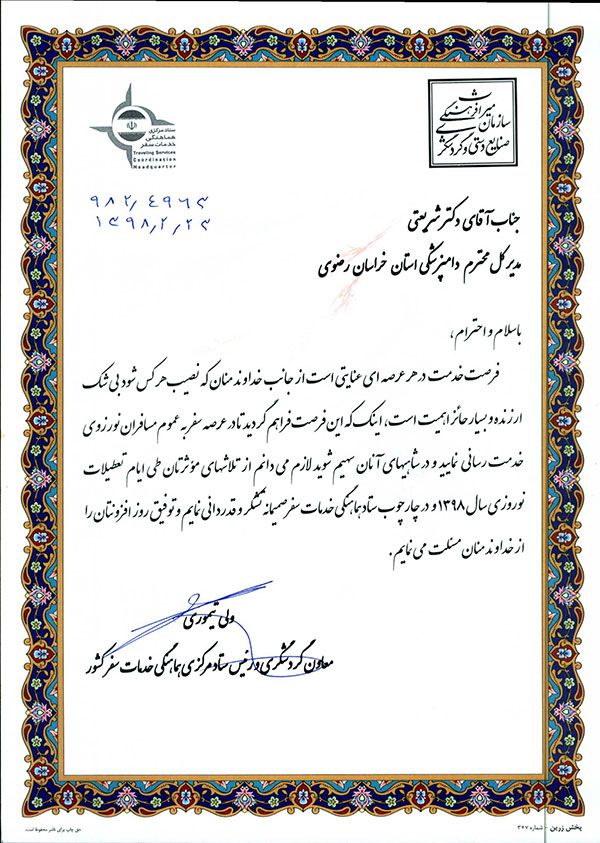 سازمان میراث فرهنگی
صنایع دستی و گردشگری
ستاد مرکزی
هماهنگی
خدمات سفر
Traveling Services
Coordination
Headquarter
۹۸۲٫۴۹۶۳
۱۳۹۸٫۲٫۲۳
جناب آقای دکتر شریعتی
مدیر کل محترم دامپزشکی استان خراسان رضوی
با سلام و احترام ،
فرصت خدمت در هر عرصه ای عنایتی است از جانب خداوند منان که نصیب هر کس شود بی شک
ارزنده و بسیار حائز اهمیت است، اینک که این فرصت فراهم گردید تا در عرصه سفر به عموم مسافران نورزوی
خدمت رسانی نمایید و در شادیهای آنان سهیم شوید لازم می دانم از تلاشهای مؤثرتان طی ایام تعطیلات
نوروزی سال ۱۳۹۸ و در چارچوب ستاد هماهنگی خدمات سفر صمیمانه تشکر و قدردانی نمایم و توفیق روز افزونتان را
از خداوند منان مسئلت می نمایم .
ولی تیموری
معاون گردشگری و رئیس ستاد مرکزی هماهنگی خدمات سفر کشور
پخش زرین - شماره ۳۶۷
حق چاپ برای ناشر محفوظ است.